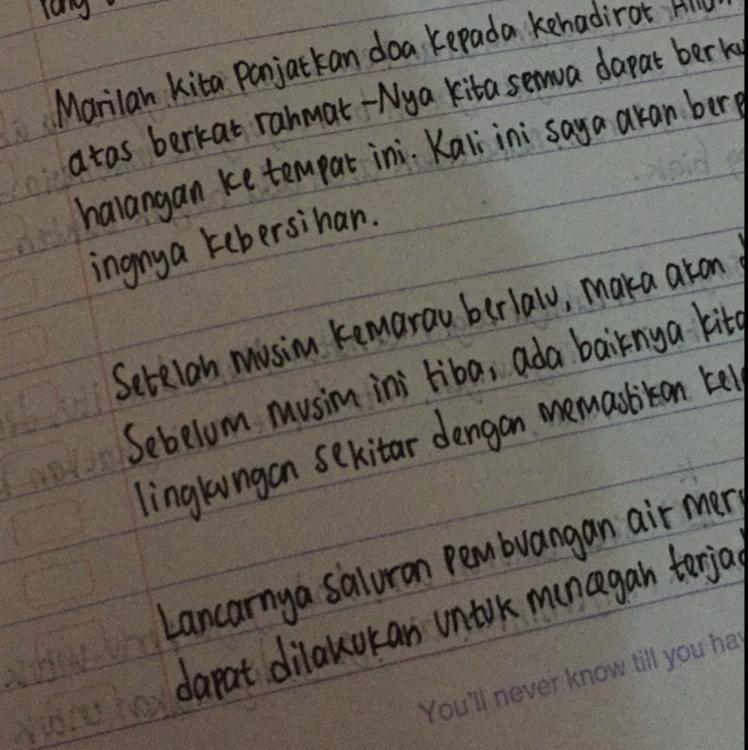 Marilah kita panjatkan doa kepada kehadirat
atas berkat rahmat-Nya kita semua dapat
halangan ke tempat ini. Kali ini saya akan
ingnya kebersihan.
Setelah musim kemarau berlalu, maka akan
Sebelum musim ini tiba, ada baiknya kita
lingkungan sekitar dengan memastikan
Lancarnya saluran pembuangan air
dapat dilakukan untuk mencegah
You'll never know till you